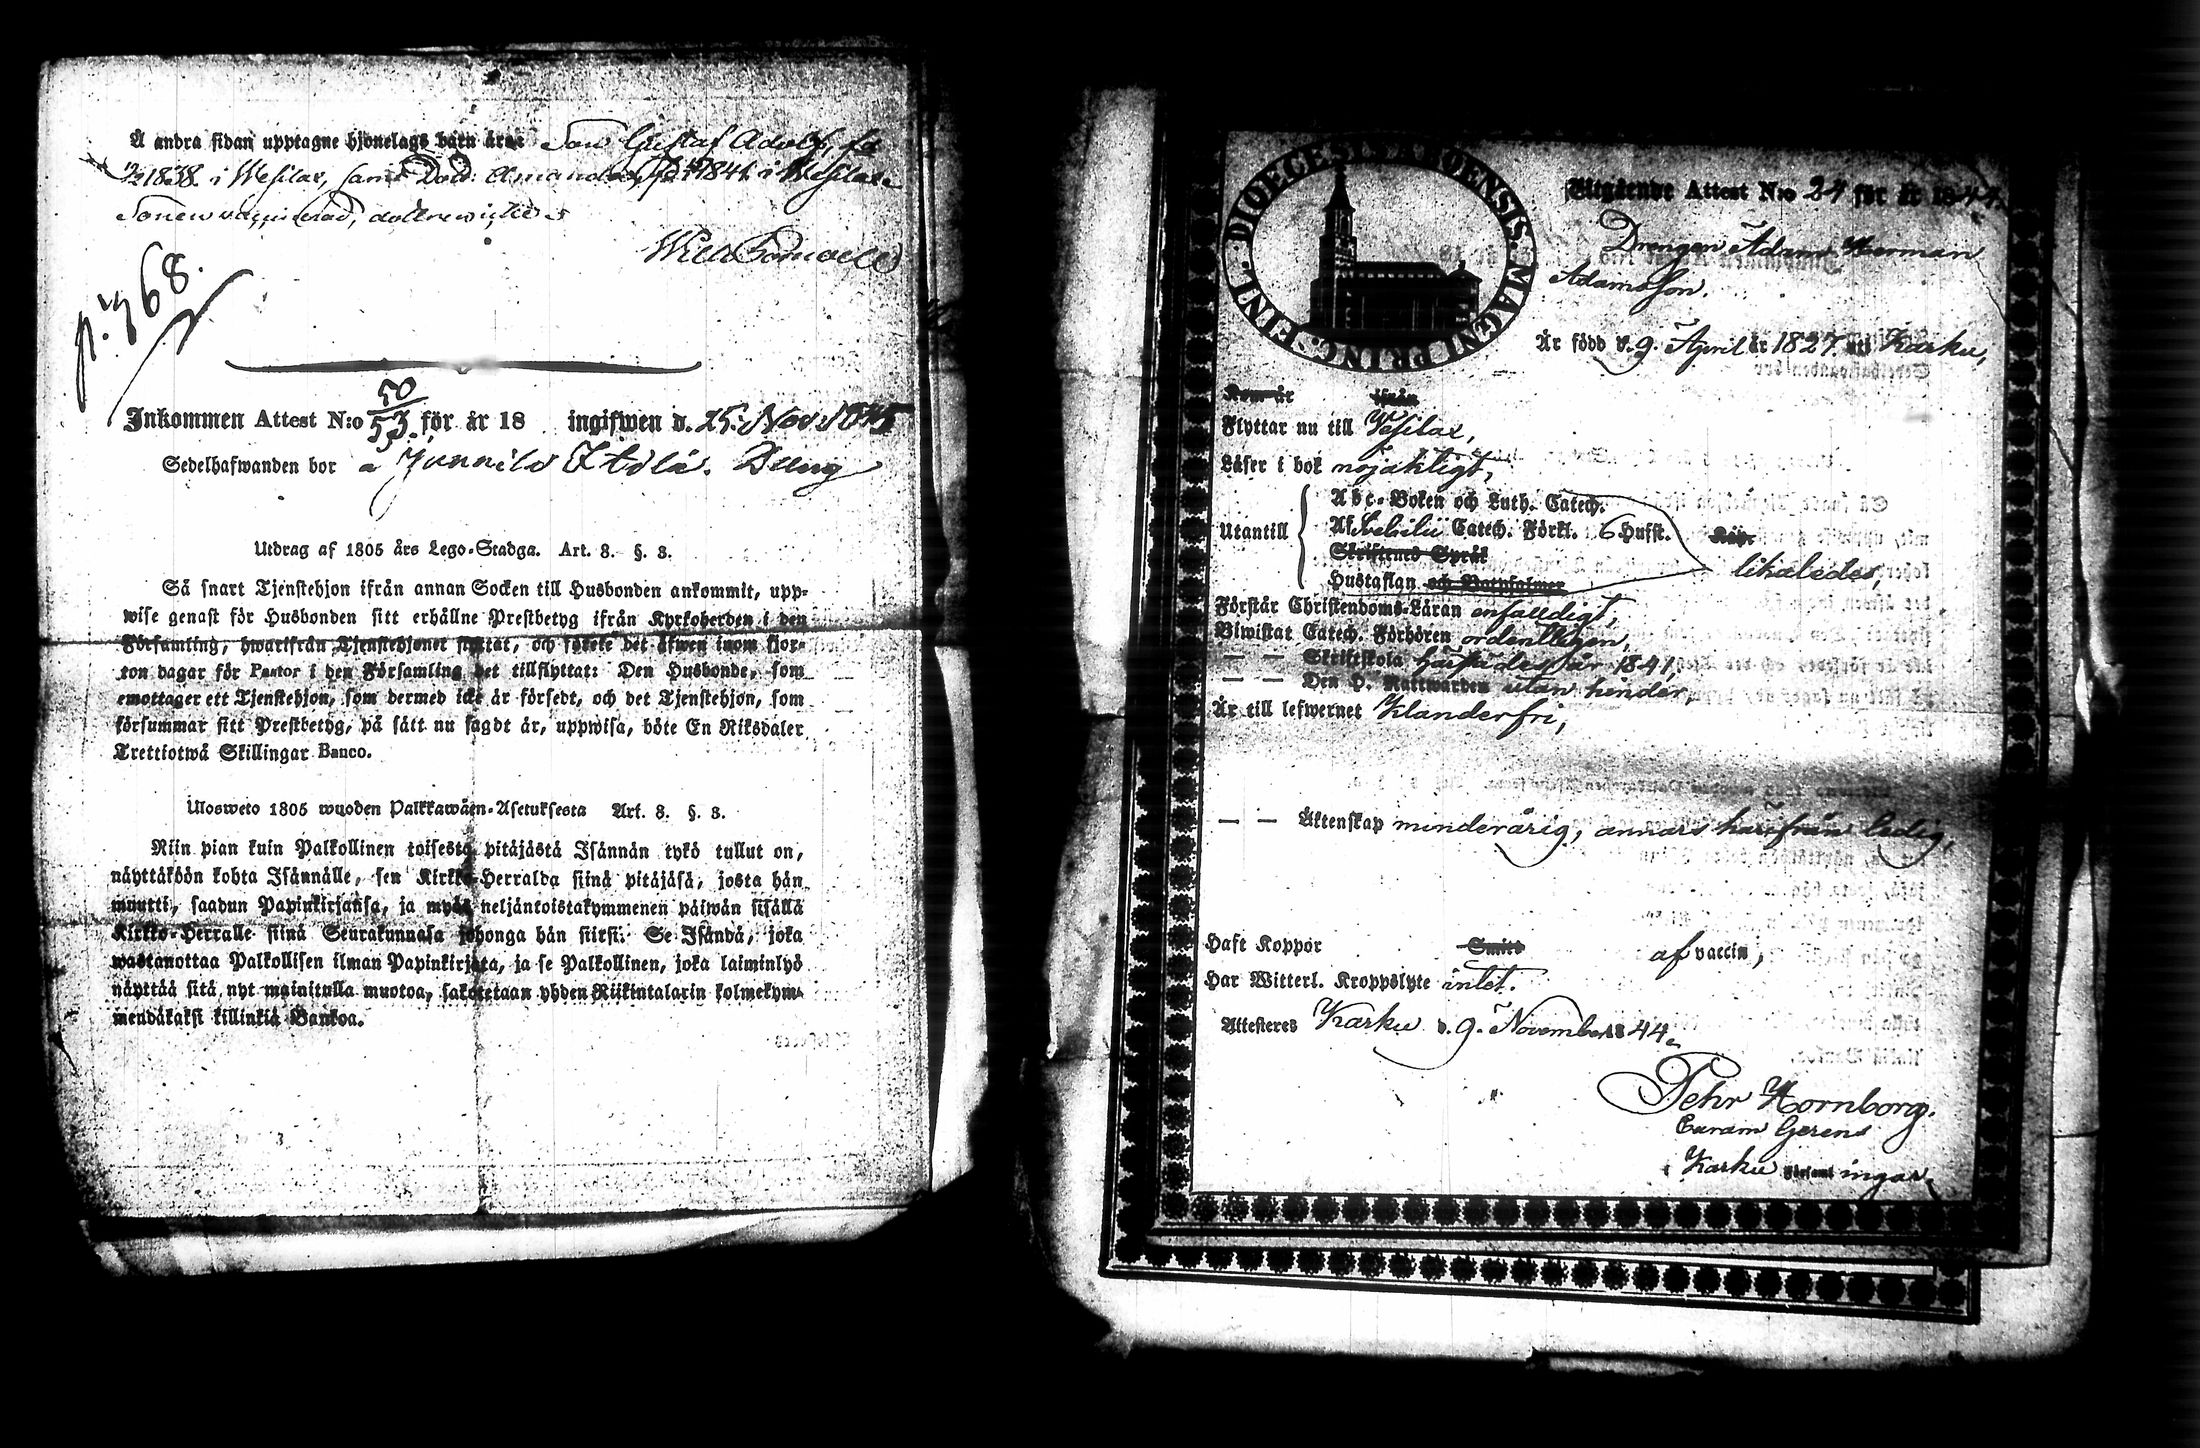 Å andra sidan upptagne hjonelags barn äro: Son Gustaf Adolf, fd
1838. i Wesilax, samt Dott. Amanda, fd 1841 i Wesilax.
Sonen vaccinerad, dottren icke
p. 368.
50
Inkommen Attest N:o 53. för år 18 ingifwen d. 25. Nov. 1845
Sedelhafwanden bor å Junnila
Utdrag af 1805 års Lego-Stadga. Art. 8. §. 3.
Så snart Tjenstehjon ifrån annan Socken till Husbonden ankommit, upp-
wise genast för Husbonden sitt erhållne Prestbetyg ifrån Kyrkoherden i den
Församling, hwarifrån Tjenstehjonet flyttat, och förete det äfwen inom fjor-
ton dagar för Pastor i den Församling det tillflyttat: Den Husbonde, som
emottager ett Tjenstehjon, som dermed icke är försedt, och det Tjenstehjon, som
försummar sitt Prestbetyg, på sätt nu sagdt är, uppwisa, böte En Riksdaler
Trettiotwå Skillingar Banco.
Ulosweto 1805 wuoden Palkkawäen-Asetuksesta Art. 8. §. 3.
Niin pian kuin Palkollinen toisesta pitäjästä Isännän tykö tullut on,
näyttäköön kohta Isännälle, sen Kirkko-Herralda siinä pitäjäsä, josta hän
muutti, saadun Papinkirjansa, ja myös neljäntoistakymmenen päiwän sisällä
Kirkko-Herralle siinä Seurakunnasa johonga hän siirsi: Se Isändä, joka
wastanottaa Palkollisen ilman Papinkirjata, ja se Palkollinen, joka laiminlyö
näyttää sitä nyt mainitulla muotoa, sakotetaan yhden Riikintalarin kolmekym-
mendäkaksi killinkiä Bankoa.
DIOECESIS ABOENSIS. MAGNI PRINC. FINL.
Utgående Attest N:o 24 för år 1844.
Drengen Adam Herman
Adamsson.
Är född d. 9. April år 1827. uti Karku,
Kom år ifrån
Flyttar nu till Vesilax,
Läser i bok nöjaktigt,
Abc-Boken och Luth. Catech.
Utantill Af Svebilii Catech. Förkl. 6 Hufst.
Skriftenes Språk likaledes,
Hustaflan och Botpsalmer
Förstår Christendoms-Läran enfaldigt,
Biwistat Catech. Förhören ordentligen,
— — Skriftskola härstädes år 1841,
— — Den H. Nattwarden utan hinder,
Är till lefwernet klanderfri,
— — Äktenskap minderårig, annars härifrån ledig,
Haft Koppor Smitt af vaccin,
Har Witterl. Kroppslyte intet.
Attesteres Karku d. 9. November 1844.
Pehr Hornborg.
Curam Gerens
i Karku Församlingar.